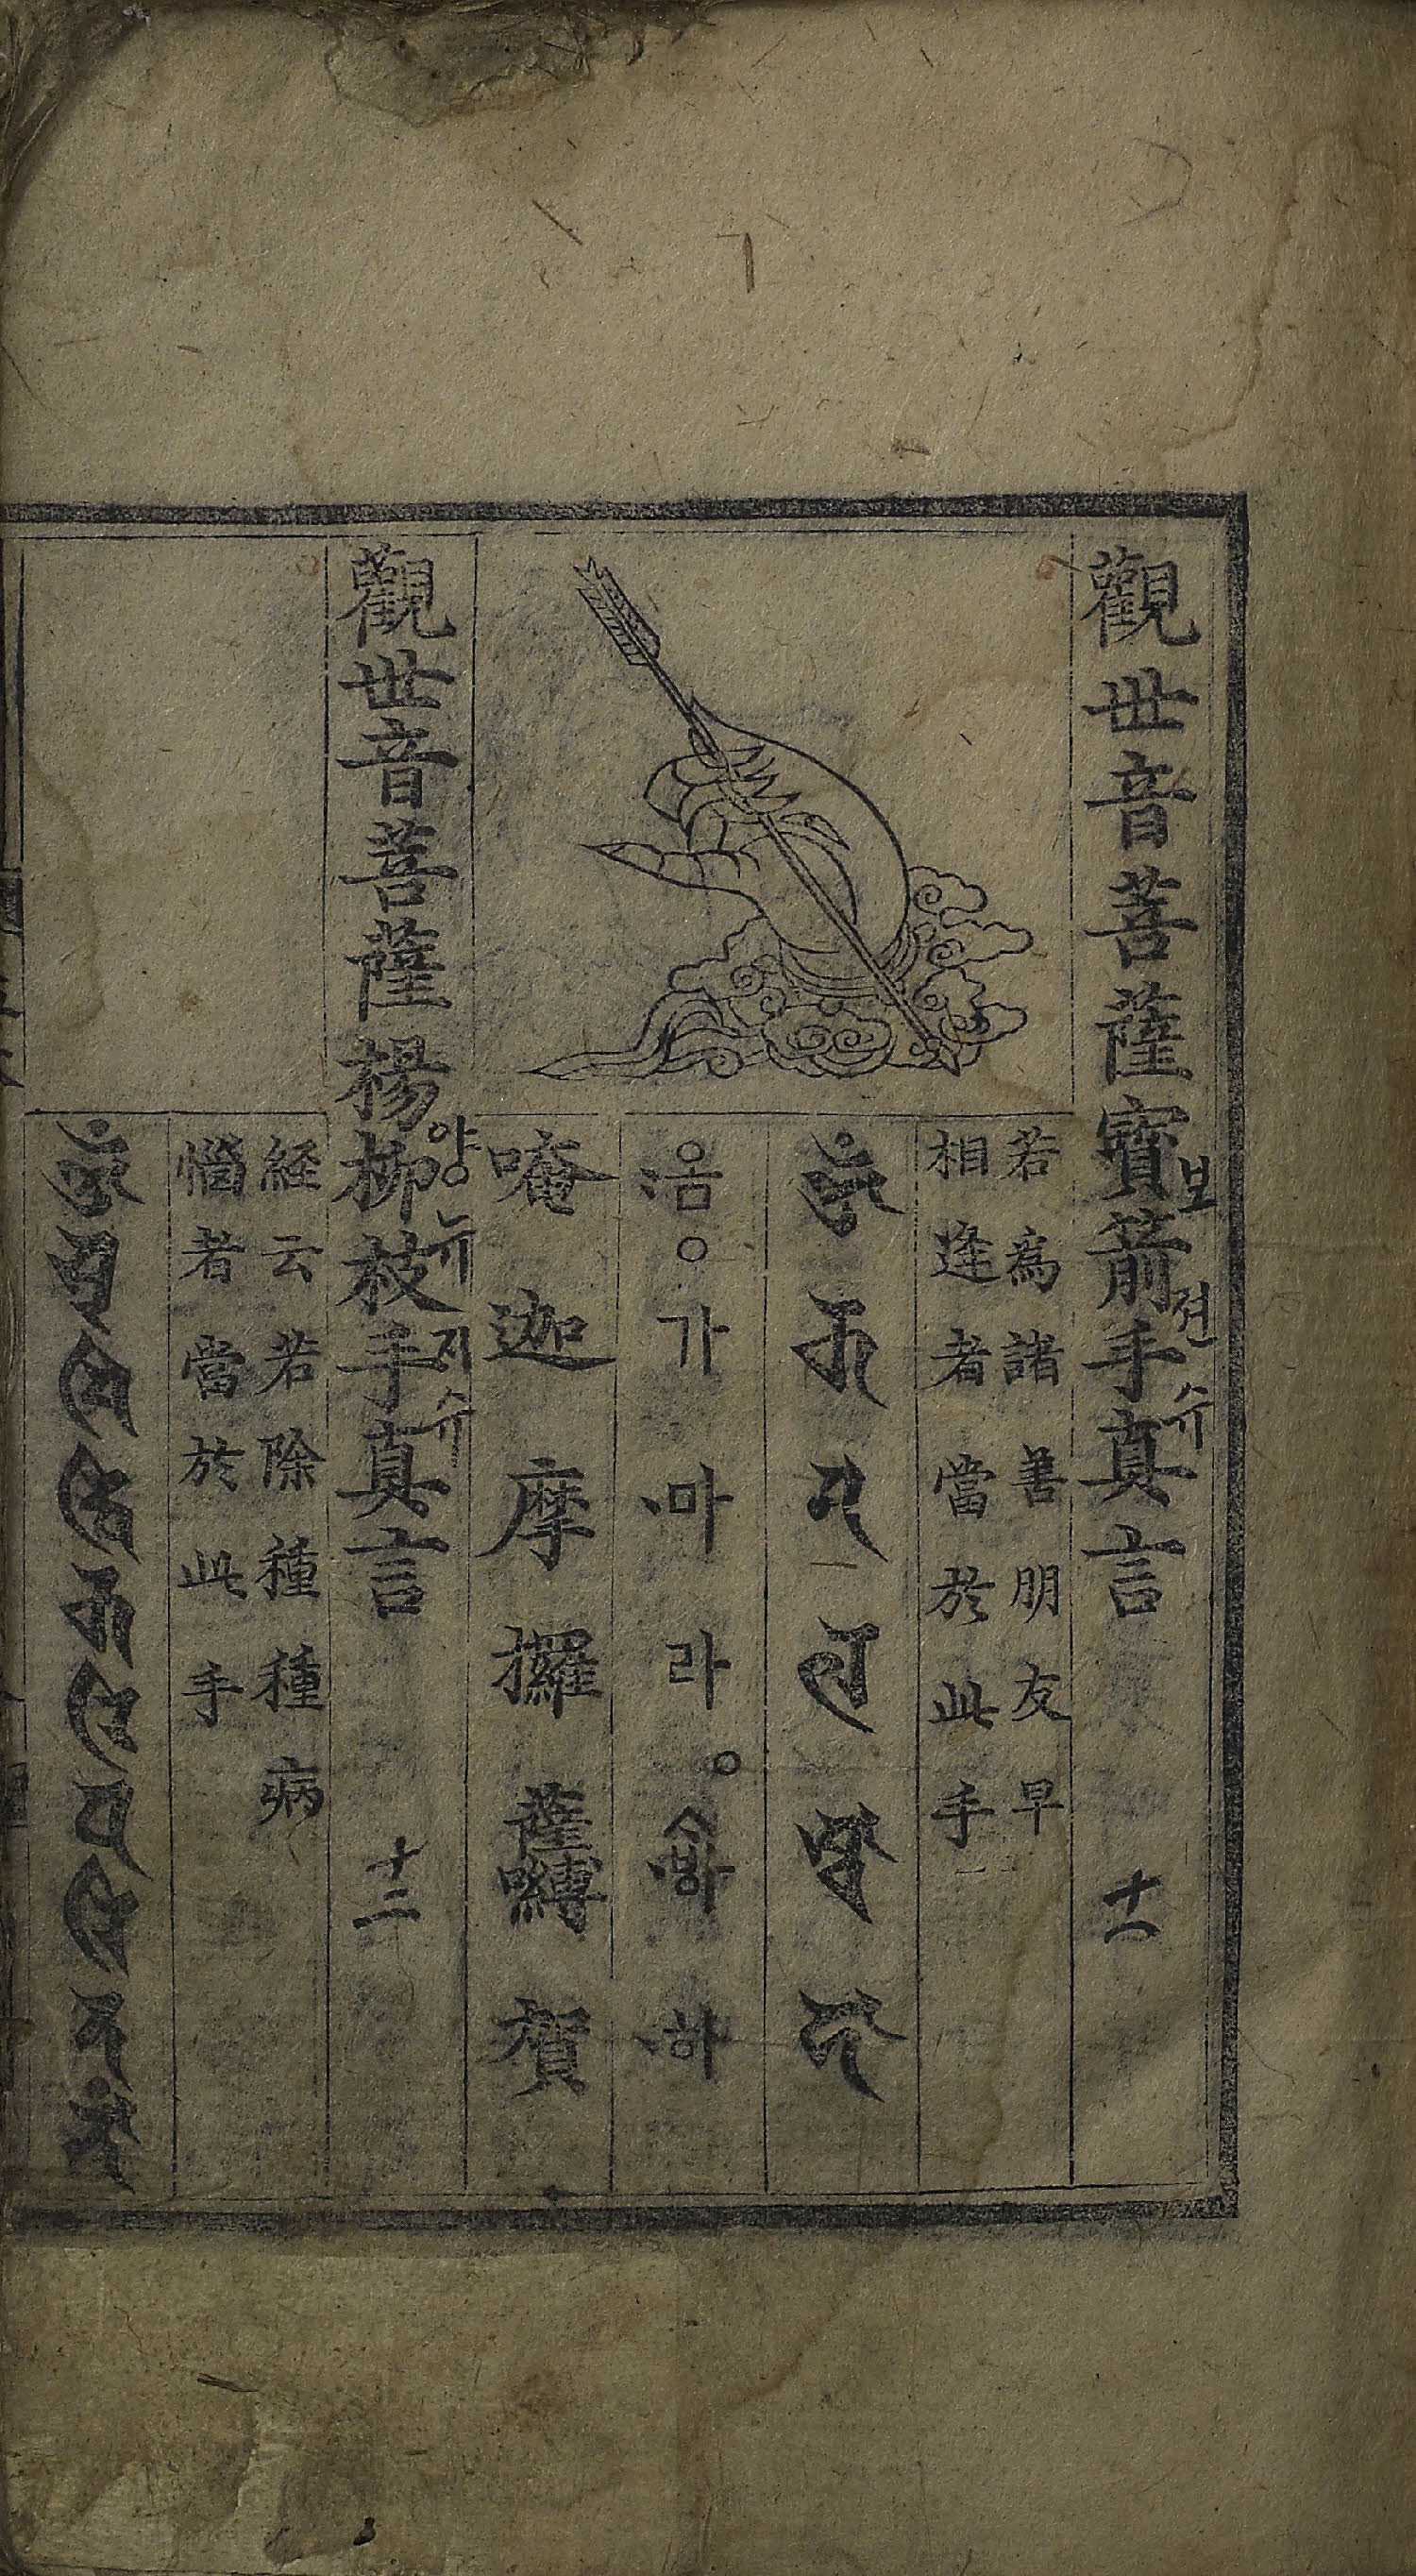 觀世音菩薩寶箭手真言 十一
보젼슈
若爲諸善朋友早
相逢者當於此手
옴○가마라○ᄉ바하
唵迦摩攞薩嚩賀
觀世音菩薩楊柳枝手真言 十二
양뉴지슈
経云若除種種病
惱者當於此手